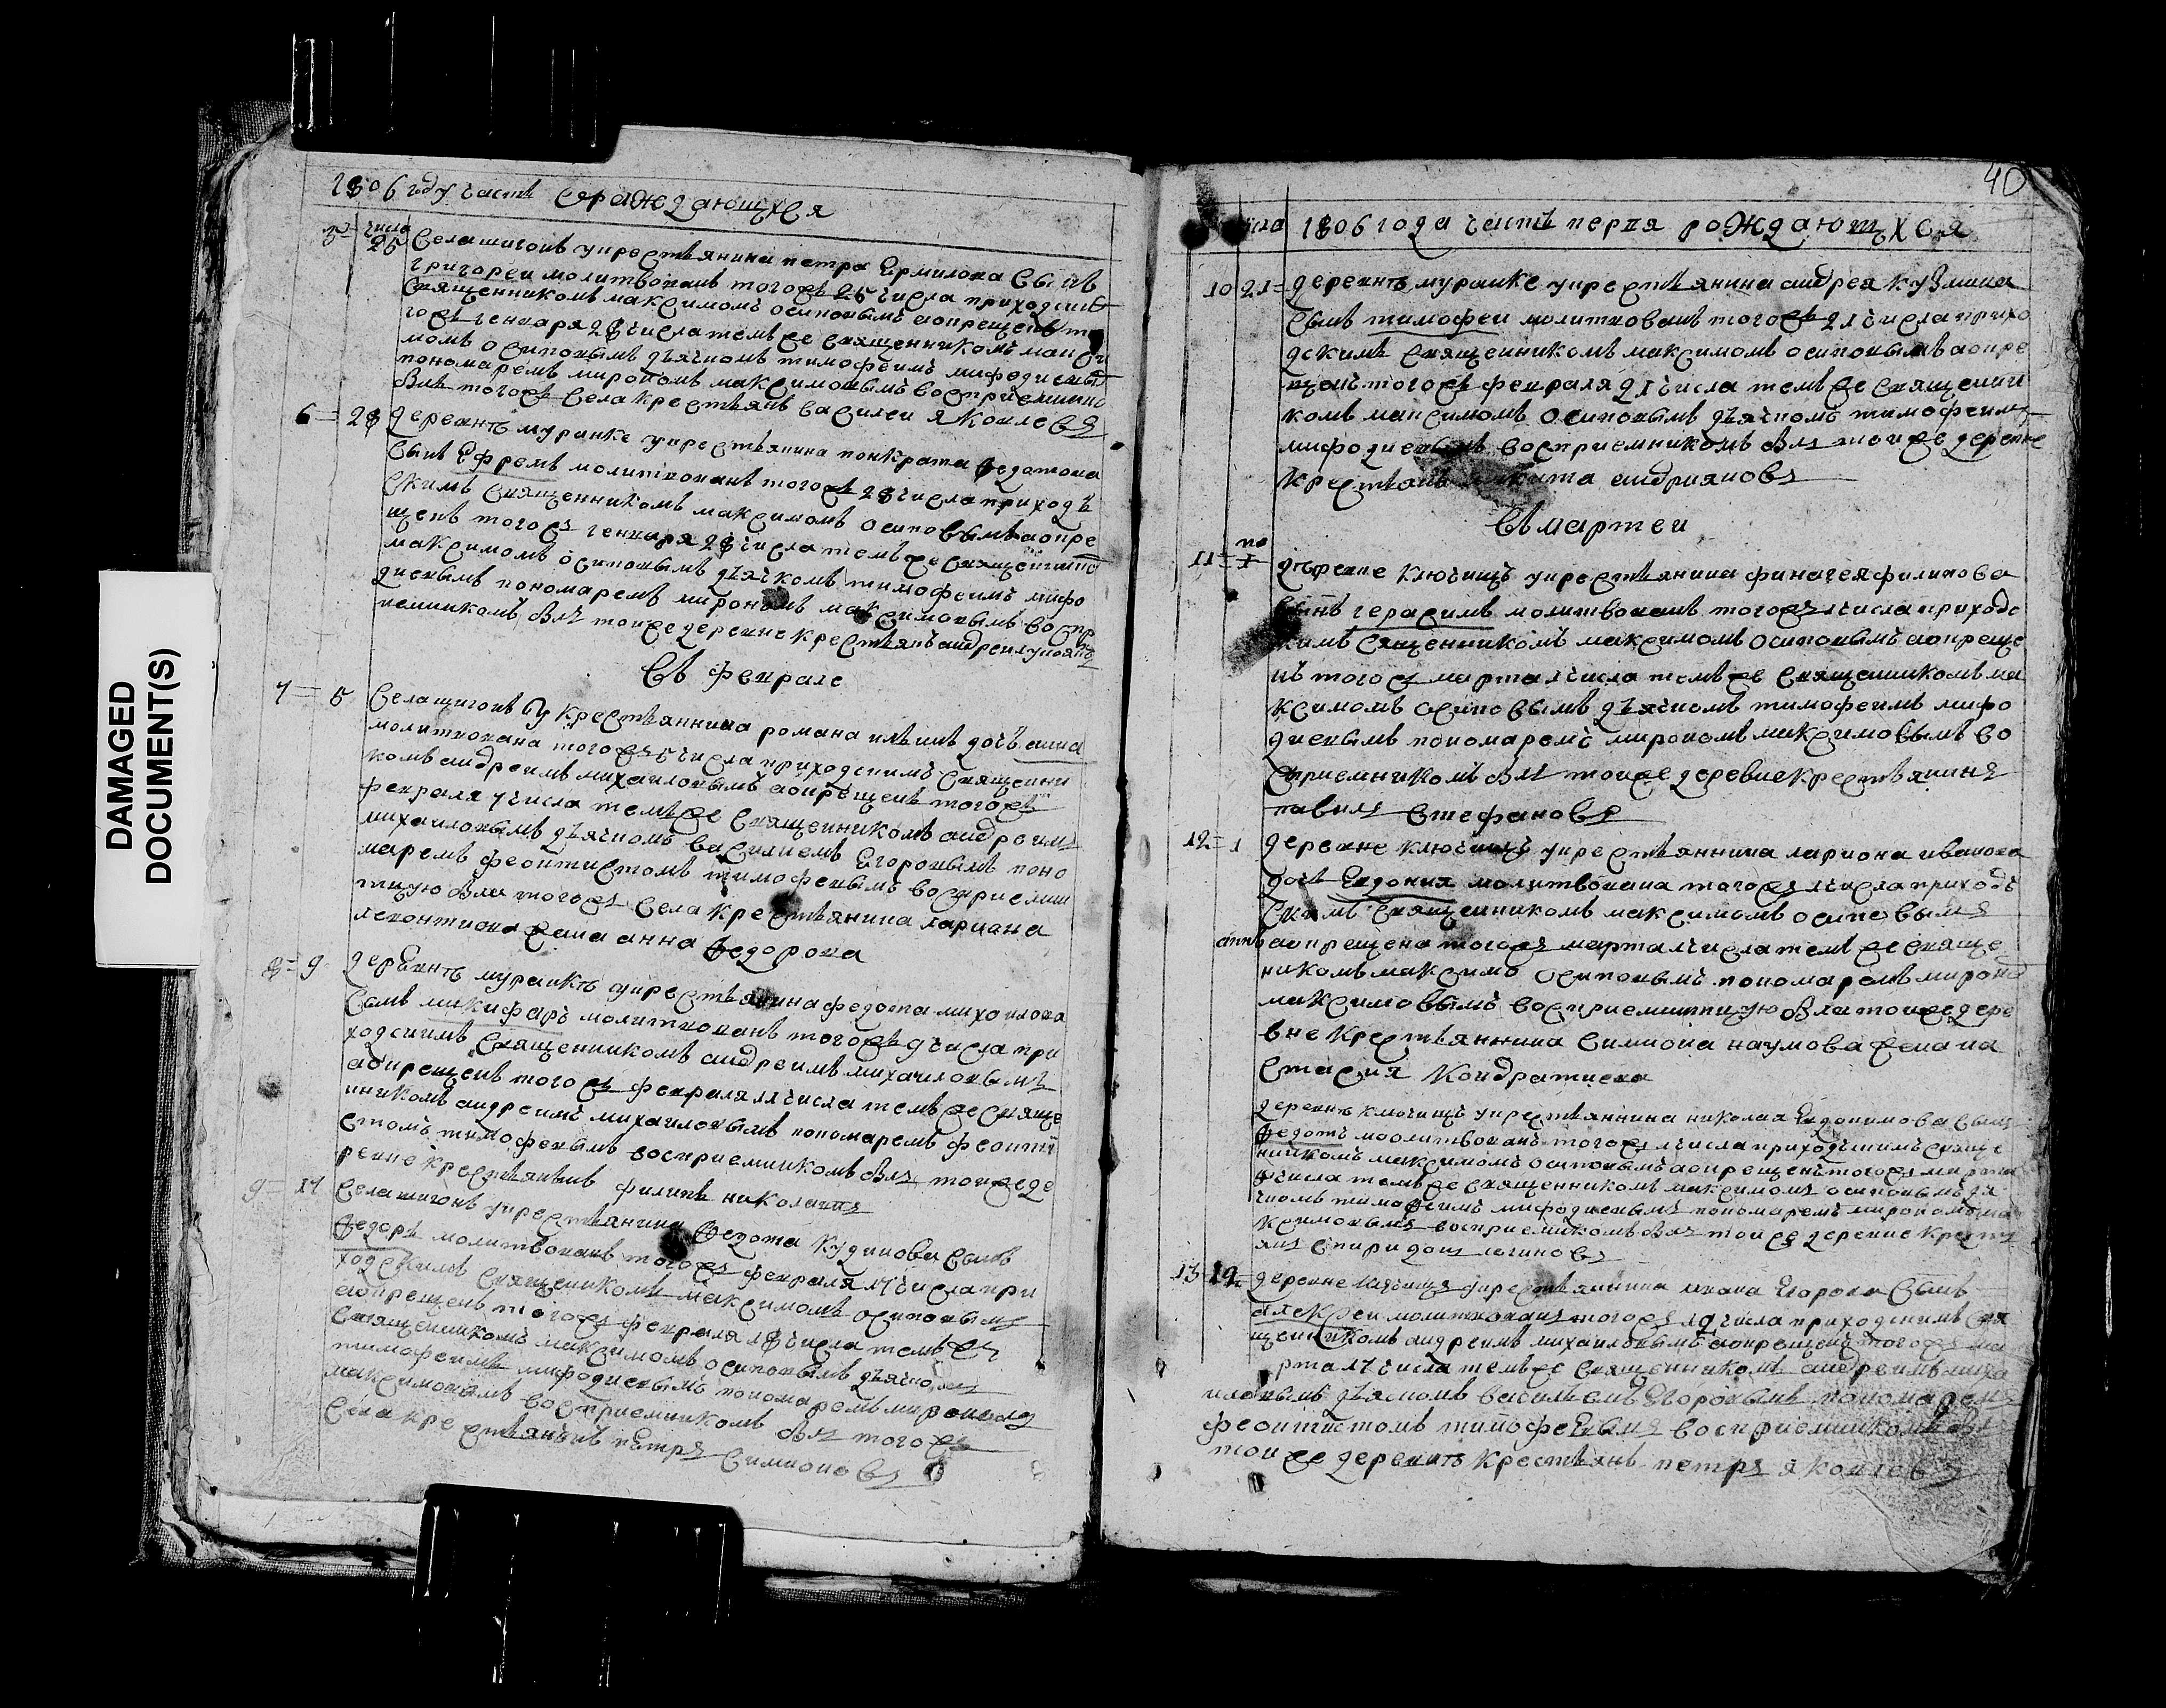 DAMAGED
DOCUMENT(S)
1806 году часть
числа
25 Села шигонъ у крестьянина петра Ермилова сынъ
григореи молитвованъ того жъ 25 числа приходски
священникомъ максимомъ осиповымъ а опрещенъ то
го жъ генваря 28 числа темъ же священникомъ макси
момъ осиповымъ дьячкомъ тимофеимъ мифодиевы
пономаремъ мироном максимовымъ восприемнико
былъ того жъ села крестьянъ василеи яковлевъ
6 = 28 деревнъ муранке у крестьянина понкрата федотова
сынъ Ефремъ молитвованъ того жъ 28 числа приходъ
скимъ священникомъ максимомъ осиповымъ а опре
щенъ того жъ генваря 28 числа темъ же священнико
максимомъ осиповымъ дьячкомъ тимофеимъ мифо
диевымъ пономаремъ мирономъ максимовымъ воспр
иемникомъ былъ тои же деревнъ крестьянъ андреи
Въ феврале
7 = 5 Села шигонъ у крестьяннина романа дочь анна
молитвована того жъ 5 числа приходскимъ священни
комъ андреимъ михаиловымъ а опрещенъ того жъ
февраля 7 числа темъ же священникомъ андреимъ
михаиловымъ дьячкомъ василиемъ Егоровымъ поно
маремъ феоктистомъ тимофевымъ восприемни
цую была того жъ села крестьянина лариана
леконтиева жена анна федорова
8 = 9 деревнъ муранкъ у крестьянина федота михоилова
сынъ микифаръ молитвованъ того жъ 9 числа при
ходскимъ священникомъ андреимъ михаиловымъ
а опрещенъ того жъ февраля 11 числа темъ же свяще
нникомъ андреимъ михаиловымъ пономаремъ феокти
стомъ тимофевымъ восприемникомъ былъ тои же де
ревне крестьянинъ филипъ николаевъ
9 = 17 Села шигонъ у крестьянина федота кудинова сынъ
федоръ молитвованъ того жъ февраля 17 числа при
ходскимъ священикомъ максимомъ осиповымъ
а опрещенъ того жъ февраля 18 числа темъ же
священникомъ максимомъ осиповымъ дьячкомъ
тимофеимъ мифодиевымъ пономаремъ мирономъ
максимовымъ восприемникомъ былъ того жъ
села крестьянинъ петръ симионовъ
40
1806 года часть первя рождающихся
10 21 = деревнъ муранке у крестьянина андрея кузмина
сынъ тимофеи молитвованъ того жъ 21 числа прихо
дскимъ священникомъ максимомъ осиповымъ а опре
щенъ того жъ февраля 21 числа темъ же священни
комъ максимомъ осиповымъ дьячкомъ тимофеимъ
мифодиевымъ восприемникомъ былъ тои же деревне
крестьянъ никита андрияновъ
Въ мартеи
11 = 1 деревне ключищъ у крестьянина финагея филипова
сынъ герасимъ молитвованъ того жъ 1 числа приходс
кимъ священникомъ максимомъ осиповымъ а опреще
нъ того жъ марта 1 числа темъ же священникомъ ма
ксимомъ осиповымъ дьячкомъ тимофеимъ мифо
диевымъ пономаремъ мирономъ максимовымъ во
сприемникомъ былъ тои же деревне крестьянинъ
павилъ стефановъ
12 = 1 деревне ключищъ у крестьяннина лариона иванова
дочь Евдокия молитвована того жъ 1 числа приходъ
скимъ священникомъ максимомъ осиповымъ
а опрещена того жъ марта 1 числа темъ же свяще
никомъ максимо осиповымъ пономаремъ мироно
максимовымъ восприемницую была тои же дере
вне крестьяннина симиона наумова жена на
стасия кондратиева
деревнъ ключищъ у крестьяннина николая Евдокимова сынъ
федотъ моолитвованъ того жъ 1 числа приходъскимъ свяще
нникомъ максимомъ осиповымъ а опрещенъ того жъ марта
числа темъ же священникомъ максимомъ осиповымъ дья
чкомъ тимофеимъ мифодиевымъ пономаремъ мирономъ ма
ксимовымъ восприемникомъ былъ тои же деревне крестья
янъ спиридонъ
13 12 = деревне ключищъ у крестьяннина ивана Егорова сынъ
алексеи молитвованъ того жъ 12 числа приходскимъ свя
щенникомъ андреимъ михаиловымъ а опрещенъ того жъ ма
рта числа темъ же священникомъ андреимъ миха
иловымъ дьячкомъ васильемъ Егоровымъ пономаремъ
феоктистомъ тимофевымъ восприемникомъ былъ
тои же деревнъ крестьянъ петръ яковлевъ